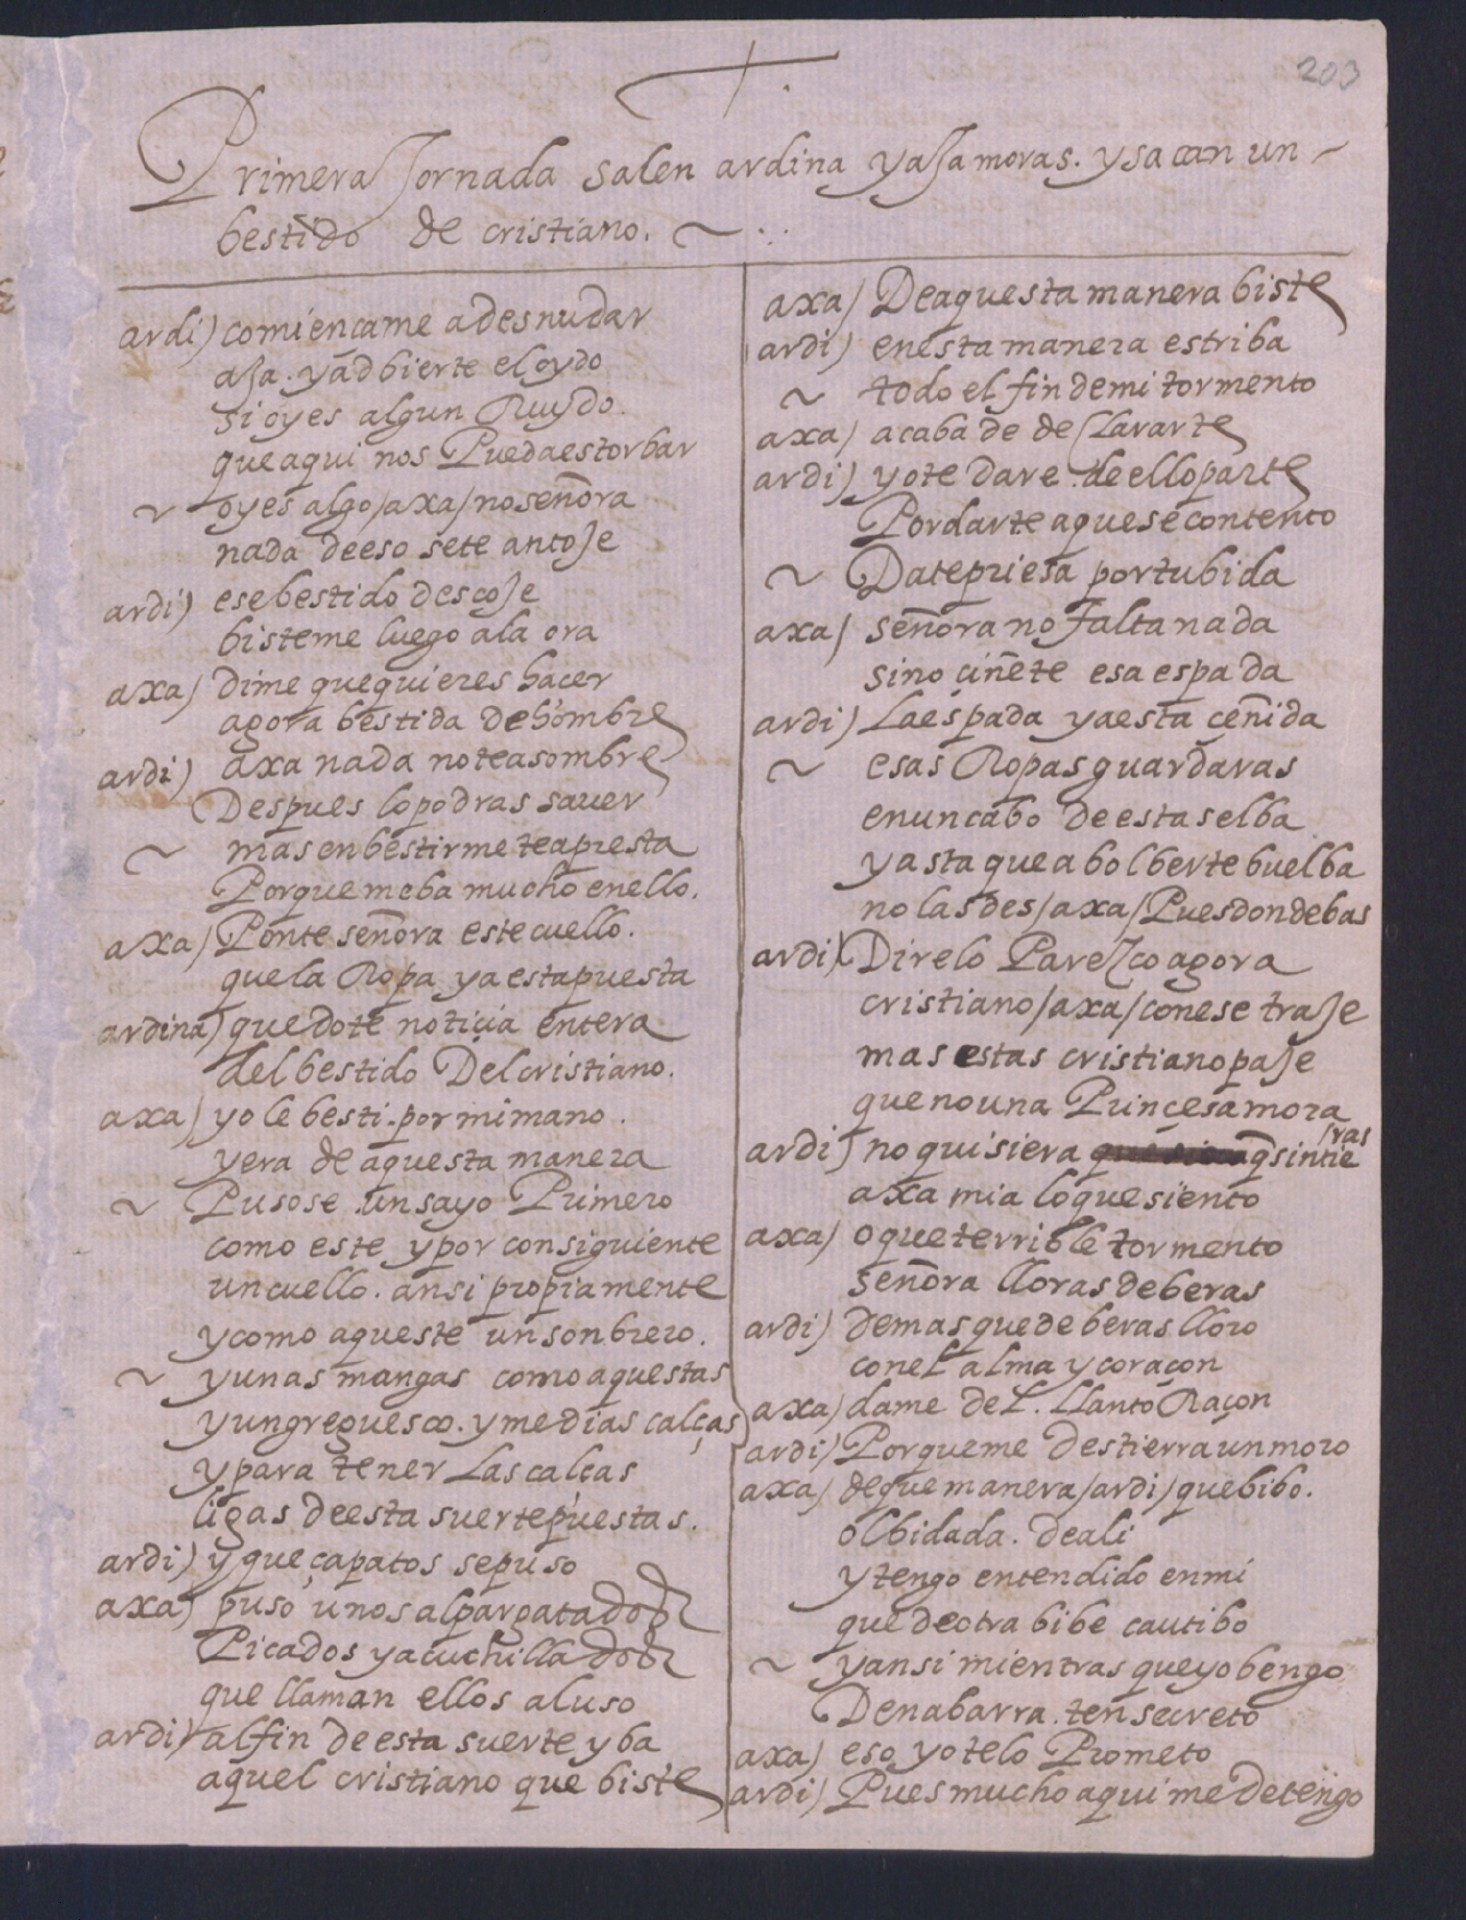 203
Primera Jornada salen ardina y aja moras. y sacan un
bestido de cristiano.
ardi) comiencame a desnudar
aja. y adbierte el oydo
si oyes algun Ruydo.
que aqui nos Pueda estorbar
~ oyes algo/axa/no señora
nada de eso se te antoje
ardi) ese bestido descoje
bisteme luego a la ora
axa) dime que quieres hacer
agora bestida de hombre
ardi) axa nada no te asombre
Despues lo podras sauer
~ mas en bestirme te apresta
Porque me ba mucho en ello.
axa) Ponte señora este cuello.
que la Ropa ya esta puesta
ardina) quedote noticia entera
del bestido Del cristiano.
axa) yo le besti. por mi mano.
y era de aquesta manera
~ Pusose un sayo Primero
como este y por consiguiente
un cuello. ansi propiamente
y como aqueste un sonbrero.
~ y unas mangas como aquestas
y un greguesco. y medias calças
y para tener Las calças
ligas de esta suerte puestas.
ardi) y que çapatos se puso
axa) puso unos alpargatados
Picados y acuchillados
que llaman ellos al uso
ardi) al fin de esta suerte yba
aquel cristiano que biste
axa) De aquesta manera biste
ardi) en esta manera estriba
~ todo el fin de mi tormento
axa) acaba de de Llararte
ardi) yo te dare de ello parte
Por darte aquese contento
~ Date priesa por tu bida
axa) señora no falta nada
sino ciñete esa espada
ardi) La espada ya esta çeñida
~ esas Ropas guardaras
en un cabo de esta selba
y asta que a bolberte buelba
no las des/axa/Pues donde bas
ardi) Direlo Parezco agora
cristiano/axa/con ese traje
mas estas cristiano paje
que no una Princesa mora
ardi) no quisiera q̃ sintieras
axa mia lo que siento
axa) o que terrible tormento
señora lloras de beras
ardi) demas que de beras lloro
con eL alma y coraçon
axa) dame deL. LLanto Raçon
ardi) Porque me destierra un moro
axa) de que manera/ardi/que bibo.
olbidada. de ali
y tengo entendido en mi
que de otra bibe cautibo
~ y ansi mientras que yo bengo
De nabarra. ten secreto
axa) eso yo te lo Prometo
ardi) Pues mucho aqui me Detengo